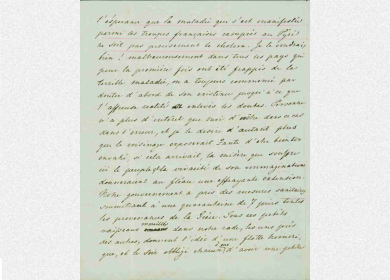 l'espérance que la maladie qui s'est manifestée
parmi les troupes françaises campées au Pyrée
ne soit pas precisement le cholera. Je le voudrais
bien! malheureusement dans tous les pays qui
pour la première fois ont été frappés de la
terrible maladie, on a toujours commencé par
douter d'abord de son existence jusqu'à ce que
l'affreuse realité ait enlevée les doutes. Personne
n'a plus d'intéret que moi d'être dans ce cas
dans l'erreur, et je le desire d'autant plus
que le voisinage exposerait Zante d'etre bientôt
envahi, si cela arrivait, la misère que souffre
ici le peuple, la vivacité de son imagination
donneraient au fleau une effrayante extension.
Notre gouvernement a pris des mesures sanitaires
soumettant à une quarantaine de 7 jours toutes
les provenances de la Grèce. Tous ces petits
vaisseaux mouillés dans notre rade, les uns près
des autres, donnent l'idée d'une flotte
que, et le soir obligé chacun d'avoir une petite